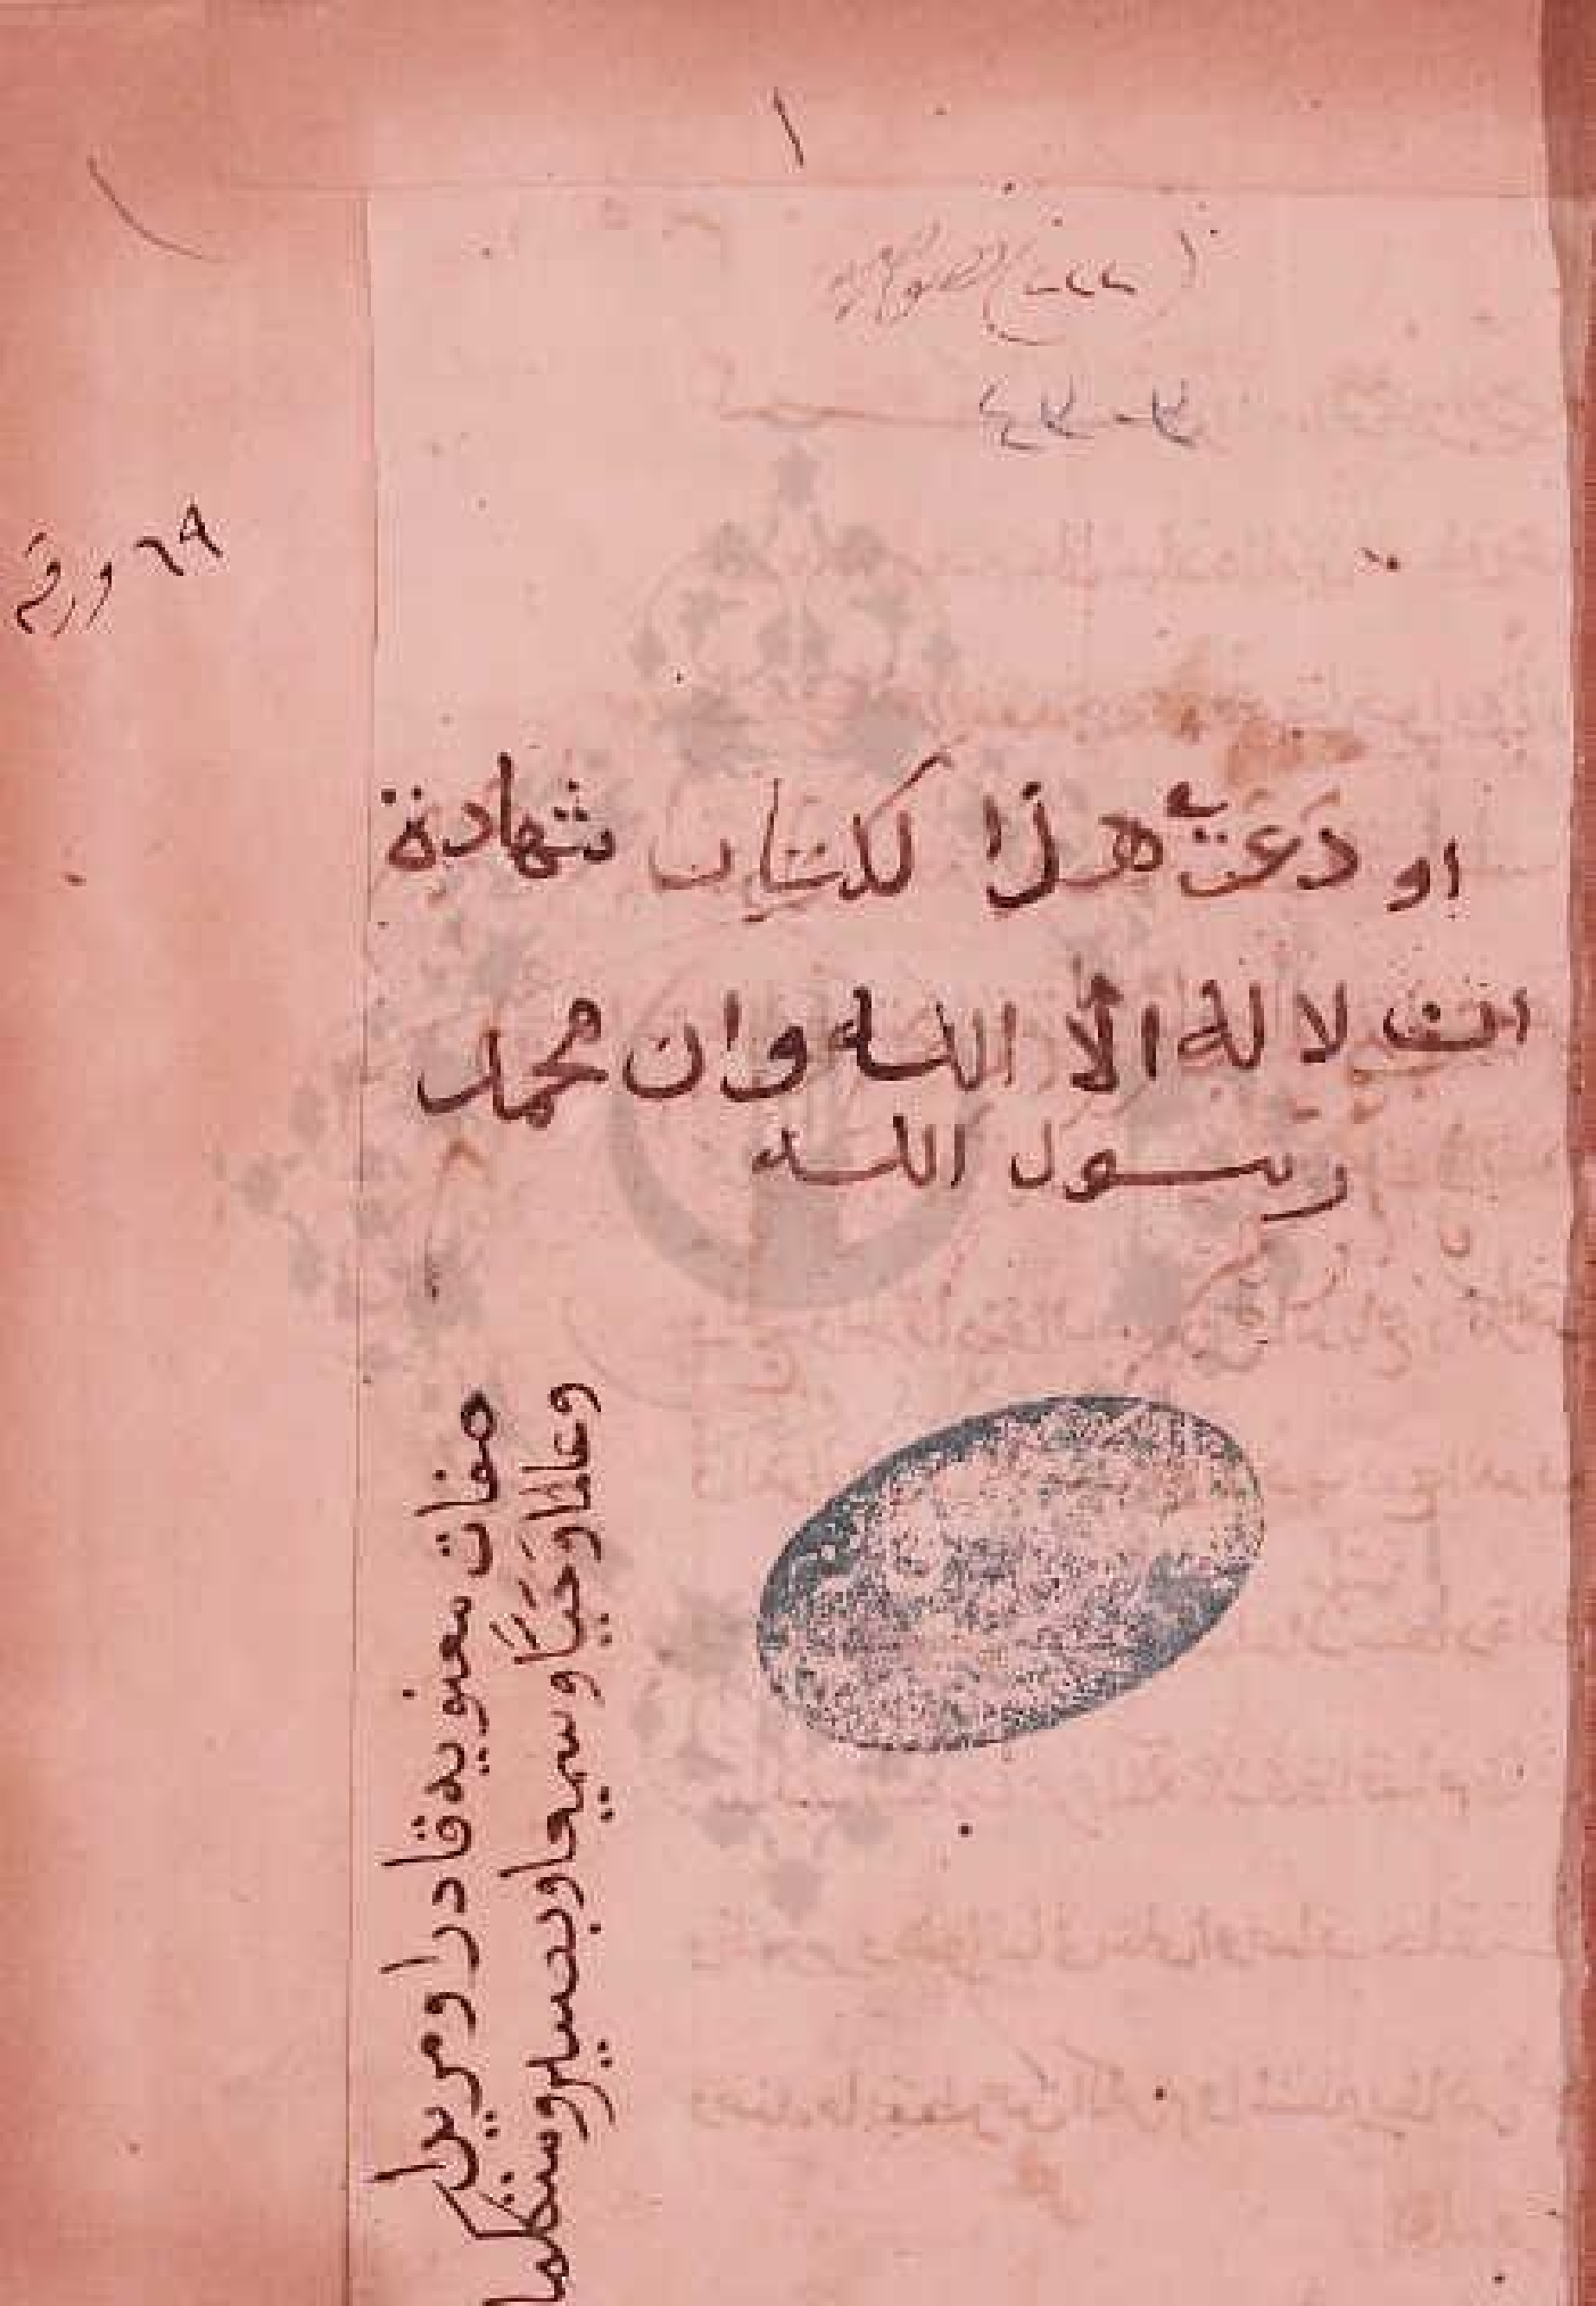 ١
٣٠٣٤
٦٩ ورقة
او دعت هذا لكتاب شهادة
ان لا له الا الله وان محمد
رسول الله
صفات معنويه قادرا ومريدا
وعالما وحيا وسميعا وبصيرا ومتكلما